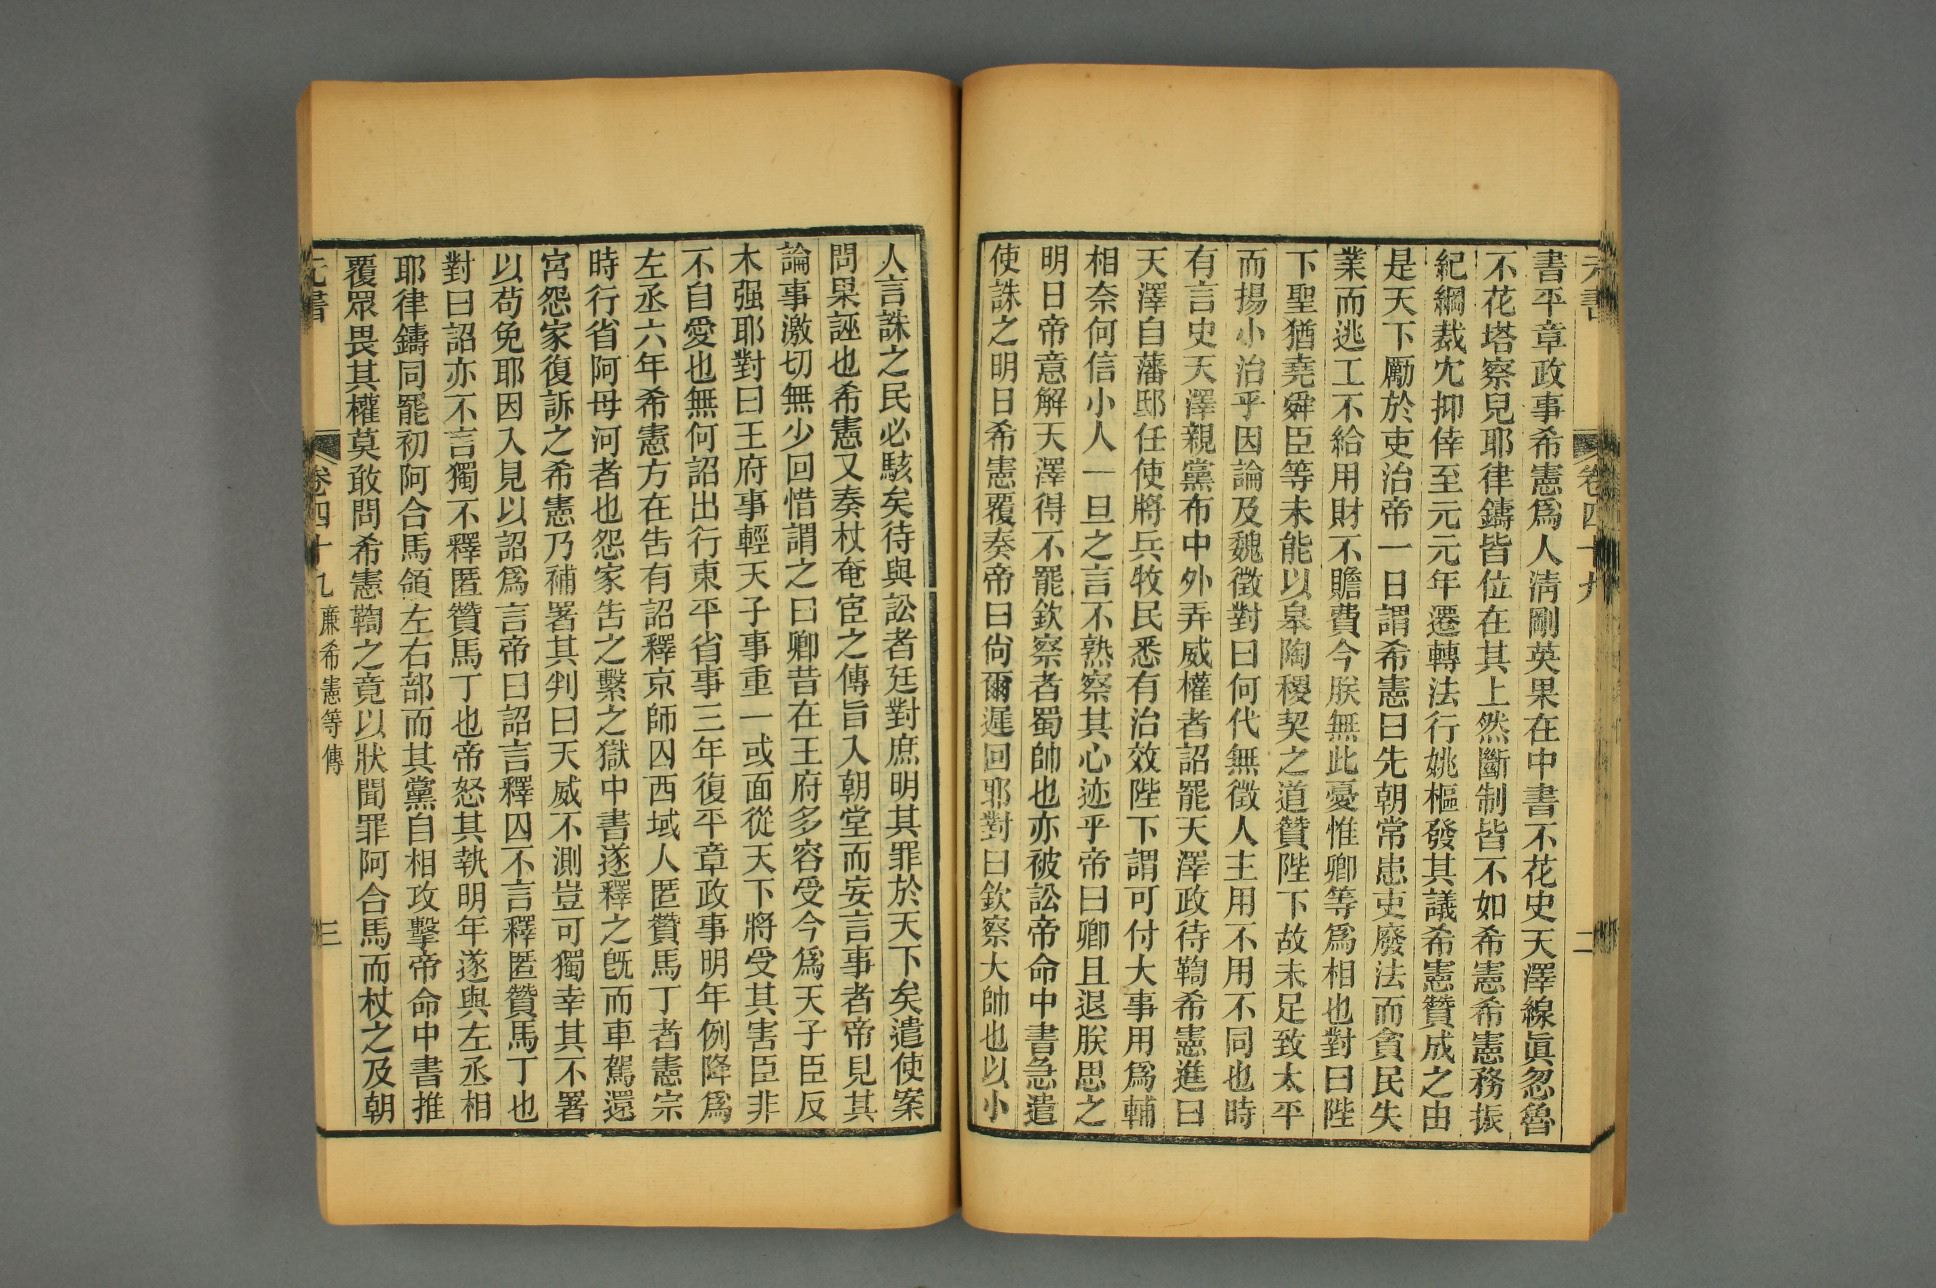 元書
卷四十九
二
書平章政事希憲爲人淸剛英果在中書不花史天澤線眞忽魯
不花塔察兒耶律鑄皆位在其上然斷制皆不如希憲希憲務振
紀綱裁冗抑倖至元元年遷轉法行姚樞發其議希憲贊成之由
是天下勵於吏治帝一日謂希憲曰先朝常患吏廢法而貪民失
業而逃工不給用財不贍費今朕無此憂惟卿等爲相也對曰陛
下聖猶堯舜臣等未能以皋陶稷契之道贊陛下故未足致太平
而揚小治乎因論及魏徵對曰何代無徵人主用不用不同也時
有言史天澤親黨布中外弄威權者詔罷天澤政待鞫希憲進曰
天澤自藩邸任使將兵牧民悉有治效陛下謂可付大事用爲輔
相奈何信小人一旦之言不熟察其心迹乎帝曰卿且退朕思之
明日帝意解天澤得不罷欽察者蜀帥也亦被訟帝命中書急遣
使誅之明日希憲覆奏帝曰尙爾遲回耶對曰欽察大帥也以小
人言誅之民必駭矣待與訟者廷對庶明其罪於天下矣遣使案
問果誣也希憲又奏杖奄宦之傳旨入朝堂而妄言事者帝見其
論事激切無少回惜謂之曰卿昔在王府多容受今爲天子臣反
木强耶對曰王府事輕天子事重一或面從天下將受其害臣非
不自愛也無何詔出行東平省事三年復平章政事明年例降爲
左丞六年希憲方在告有詔釋京師囚西域人匿贊馬丁者憲宗
時行省阿母河者也怨家告之繫之獄中書遂釋之旣而車駕還
宮怨家復訴之希憲乃補署其判曰天威不測豈可獨幸其不署
以苟免耶因入見以詔爲言帝曰詔言釋囚不言釋匿贊馬丁也
對曰詔亦不言獨不釋匿贊馬丁也帝怒其執明年遂與左丞相
耶律鑄同罷初阿合馬領左右部而其黨自相攻擊帝命中書推
覆眾畏其權莫敢問希憲鞫之竟以狀聞罪阿合馬而杖之及朝
元書
卷四十九
廉希憲等傳
三